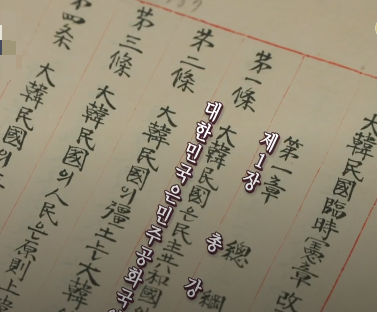 大韓民國臨時憲章 改
第一章 總綱
제1장 총 강
第一條 大韓民國은民主共和國
대한민국은민주공화국
第二條 大韓民國의疆土는大韓
第三條 大韓民國의人民은原則上
第四条 大韓民國의